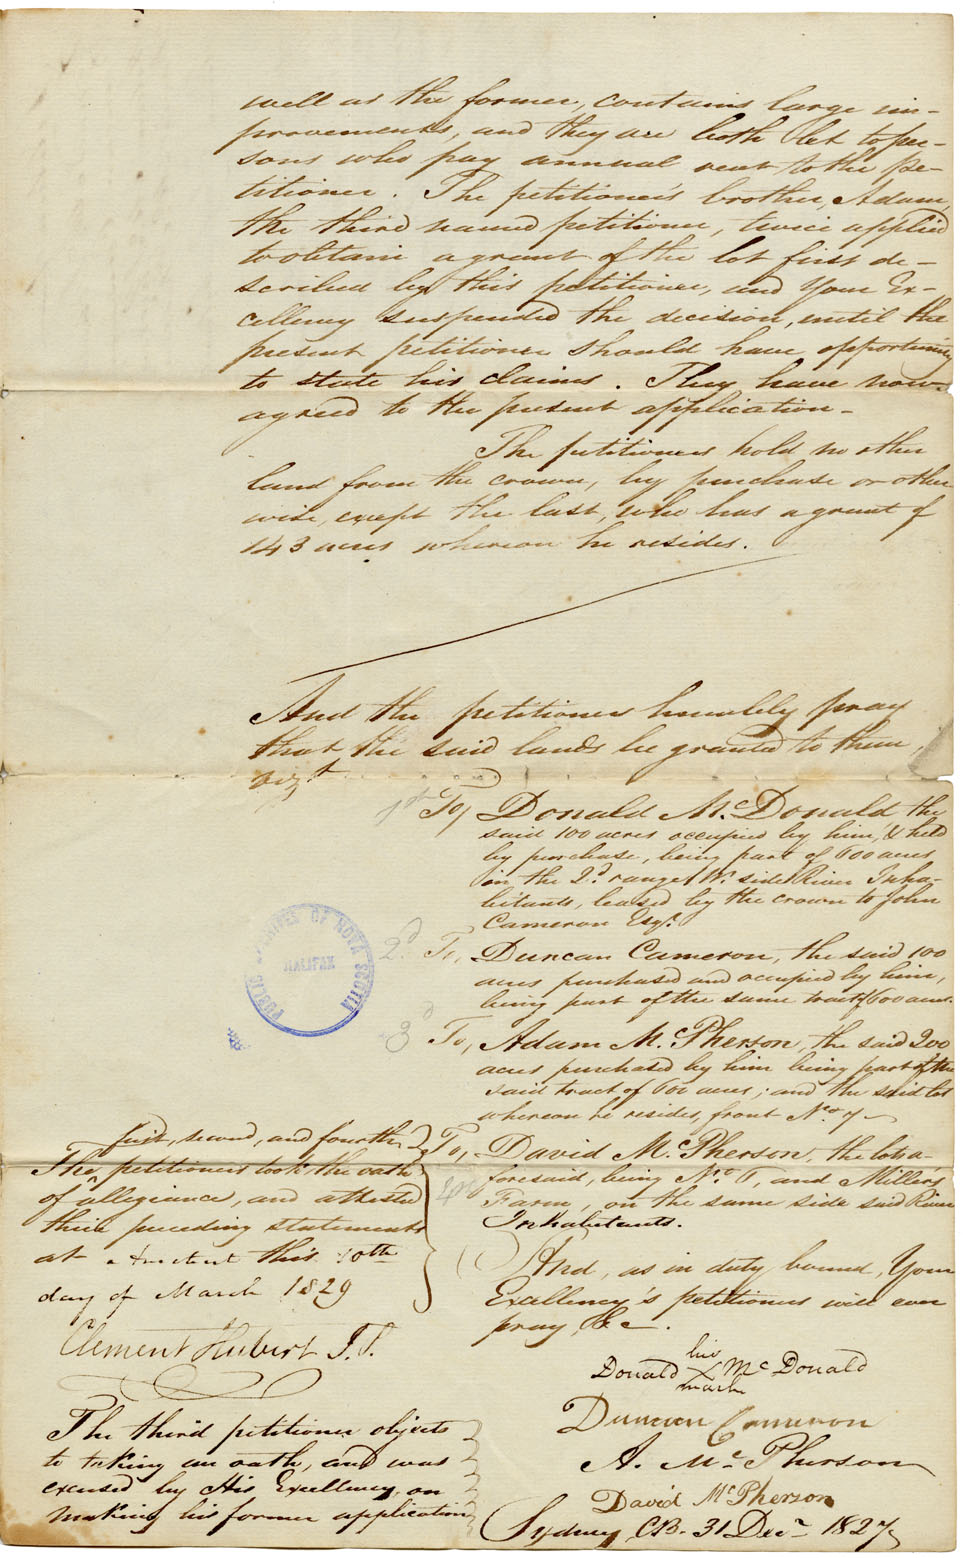 well as the former, contains large im-
provements, and they are both let to per-
sons who pay annual rent to the Pe-
titioner. The petitioner's brother, Adam,
the third named petitioner, twice applied
to obtain a grant of the lot first de-
scribed by this petitioner, and Your Ex-
cellency suspended the decision, until the
present petitioner should have opportunity
to state his claims. They have now
agreed to the present application -
The petitioners hold no other
land from the crown, by purchase or other
wise, except the last, who has a grant of
143 acres whereon he resides.
And the petitioners humbly pray
that the said lands be granted to them,
vizt
1st To, Donald McDonald, the
said 100 acres occupied by him, & held
by purchase, being part of 600 acres
in the 2d range W. side River Inha-
bitants, leased by the crown to John
Cameron Esqr.
2d To, Duncan Cameron, the said 100
acres purchased and occupied by him,
being part of the same tract of 600 acres.
3d To, Adam McPherson, the said 200
acres purchased by him being part of the
said tract of 600 acres; and the said lot
whereon he resides, front No. 7 -
To, David McPherson, the lot a-
foresaid, being No. 6, and Miller's
Farm, on the same side said River
Inhabitants.
And, as in duty bound, Your
Excellency's petitioners will ever
pray, &c -.
Donald his X mark McDonald
Duncan Cameron
A. McPherson
David McPherson
Sydney, C.B. 31 Decr 1827
first, second, and fourth
The petitioners took the oath
of allegiance, and attested
their preceding statements
at this 10th
day of March 1829
Clement Hubert J.P.
The third petitioner objects
to taking an oath, and was
excused by His Excellency, on
making his former application
PUBLIC ARCHIVES OF NOVA SCOTIA
HALIFAX